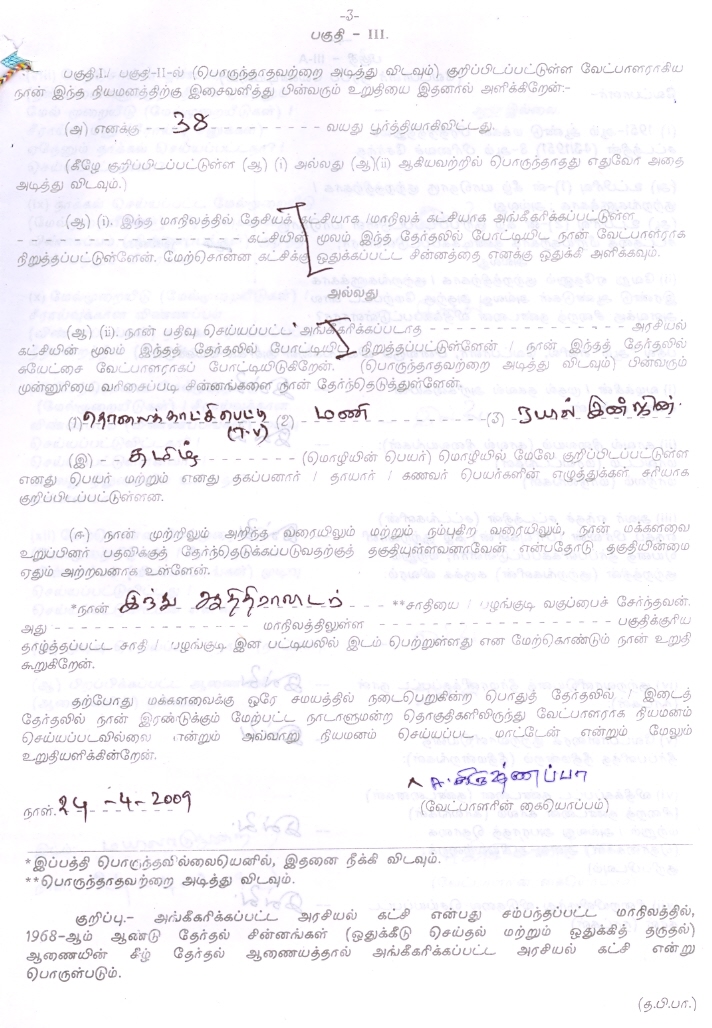 -3-
பகுதி - III.
பகுதி.I./ பகுதி-II-ல் (பொருந்தாதவற்றை அடித்து விடவும்) குறிப்பிடப்பட்டுள்ள வேட்பாளராகிய
நான் இந்த நியமனத்திற்கு இசைவளித்து பின்வரும் உறுதியை இதனால் அளிக்கிறேன்:-
(அ) எனக்கு - - 38 - - - - - - - - - வயது பூர்த்தியாகிவிட்டது.
(கீழே குறிப்பிடப்பட்டுள்ள (ஆ) (i) அல்லது (ஆ)(ii) ஆகியவற்றில் பொருந்தாதது எதுவோ அதை
அடித்து விடவும்.)
(ஆ) (i). இந்த மாநிலத்தில் தேசியக் கட்சியாக /மாநிலக் கட்சியாக அங்கீகரிக்கப்பட்டுள்ள
- - - - - - - - - - - - - - - - - - - கட்சியின் மூலம் இந்த தேர்தலில் போட்டியிட நான் வேட்பாளராக
நிறுத்தப்பட்டுள்ளேன். மேற்சொன்ன கட்சிக்கு ஒதுக்கப்பட்ட சின்னத்தை எனக்கு ஒதுக்கி அளிக்கவும்.
அல்லது
(ஆ) (ii). நான் பதிவு செய்யப்பட்ட அங்கீகரிக்கப்படாத - - - - - - - - - - - - - - - - அரசியல்
கட்சியின் மூலம் (இந்தத் தேர்தலில் போட்டியிட நிறுத்தப்பட்டுள்ளேன் / நான் இந்தத் தேர்தலில்
சுயேட்சை வேட்பாளராகப் போட்டியிடுகிறேன். (பொருந்தாதவற்றை அடித்து விடவும்) பின்வரும்
முன்னுரிமை வரிசைப்படி சின்னங்களை நான் தேர்ந்தெடுத்துள்ளேன்.
(1) தொலைக்காட்சி பெட்டி (T.V) (2) - மணி - - - - - - (3) ரயில் இன்ஜின்.
(இ) - - தமிழ் - - - - - - (மொழியின் பெயர்) மொழியில் மேலே குறிப்பிடப்பட்டுள்ள
எனது பெயர் மற்றும் எனது தகப்பனார் / தாயார் / கணவர் பெயர்களின் எழுத்துக்கள் சரியாக
குறிப்பிடப்பட்டுள்ளன.
(ஈ) நான் முற்றிலும் அறிந்த வரையிலும் மற்றும் நம்புகிற வரையிலும், நான் மக்களவை
உறுப்பினர் பதவிக்குத் தேர்ந்தெடுக்கப்படுவதற்குத் தகுதியுள்ளவனாவேன் என்பதோடு தகுதியின்மை
ஏதும் அற்றவனாக உள்ளேன்.
*நான் இந்து ஆதிதிராவிடர் - - - - **சாதியை / பழங்குடி வகுப்பைச் சேர்ந்தவன்.
அது - - - - - - - - - - - - - - - - - - - மாநிலத்திலுள்ள - - - - - - - - - - - - - - - - - - பகுதிக்குரிய
தாழ்த்தப்பட்ட சாதி / பழங்குடி இன பட்டியலில் இடம் பெற்றுள்ளது என மேற்கொண்டும் நான் உறுதி
கூறுகிறேன்.
தற்போது மக்களவைக்கு ஒரே சமயத்தில் நடைபெறுகின்ற பொதுத் தேர்தலில் / இடைத்
தேர்தலில் நான் இரண்டுக்கும் மேற்பட்ட நாடாளுமன்ற தொகுதிகளிலிருந்து வேட்பாளராக நியமனம்
செய்யப்படவில்லை என்றும் அவ்வாறு நியமனம் செய்யப்பட மாட்டேன் என்றும் மேலும்
உறுதியளிக்கின்றேன்.
A. கிருஷ்ணப்பா
நாள். 24 - 4 - 2009
(வேட்பாளரின் கையொப்பம்)
*இப்பத்தி பொருந்தவில்லையெனில், இதனை நீக்கி விடவும்.
**பொருந்தாதவற்றை அடித்து விடவும்.
குறிப்பு.- அங்கீகரிக்கப்பட்ட அரசியல் கட்சி என்பது சம்பந்தப்பட்ட மாநிலத்தில்,
1968-ஆம் ஆண்டு தேர்தல் சின்னங்கள் (ஒதுக்கீடு செய்தல் மற்றும் ஒதுக்கித் தருதல்)
ஆணையின் கீழ் தேர்தல் ஆணையத்தால் அங்கீகரிக்கப்பட்ட அரசியல் கட்சி என்று
பொருள்படும்.
(த.பி.பா.)